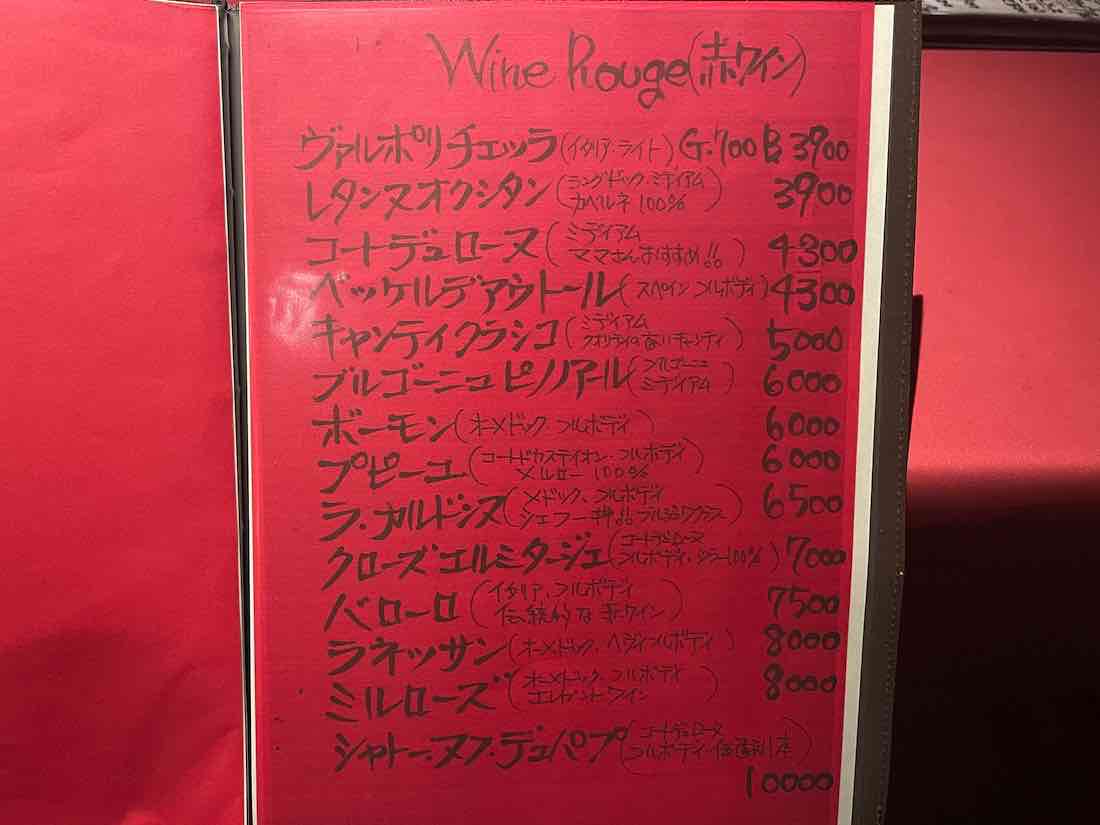 Wine Rouge(赤ワイン)
ヴァルポリチェッラ(イタリア・ライト) G.700 B 3900
レタンヌオクシタン(ラングドック・ミディアム
カベルネ 100%) 3900
コートデュローヌ(ミディアム
ママさんおすすめ!!) 4300
ベッケルデアウトール(スペイン フルボディ) 4300
キャンティクラシコ(ミディアム
クオリティの高いキャンティ) 5000
ブルゴーニュピノノアール(ブルゴーニュ
ミディアム) 6000
ボーモン(オーメドック、フルボディ) 6000
プピーユ(コートドカスティオン・フルボディ
メルロー 100%) 6000
ラ・カルドンヌ(メドック、フルボディ
シェフ一押!! ブルジョワクラス) 6500
クローズエルミタージュ(コートデュローヌ
フルボディ・シラー100%) 7000
バローロ(イタリア、フルボディ
伝統的な赤ワイン) 7500
ラネッサン(オーメドック、ヘヴィフルボディ) 8000
ミルローズ(オーメドック、フルボディ
エレガントワイン) 8000
シャトー・ヌフ・デュパプ(コートデュローヌ
フルボディ・)
10000